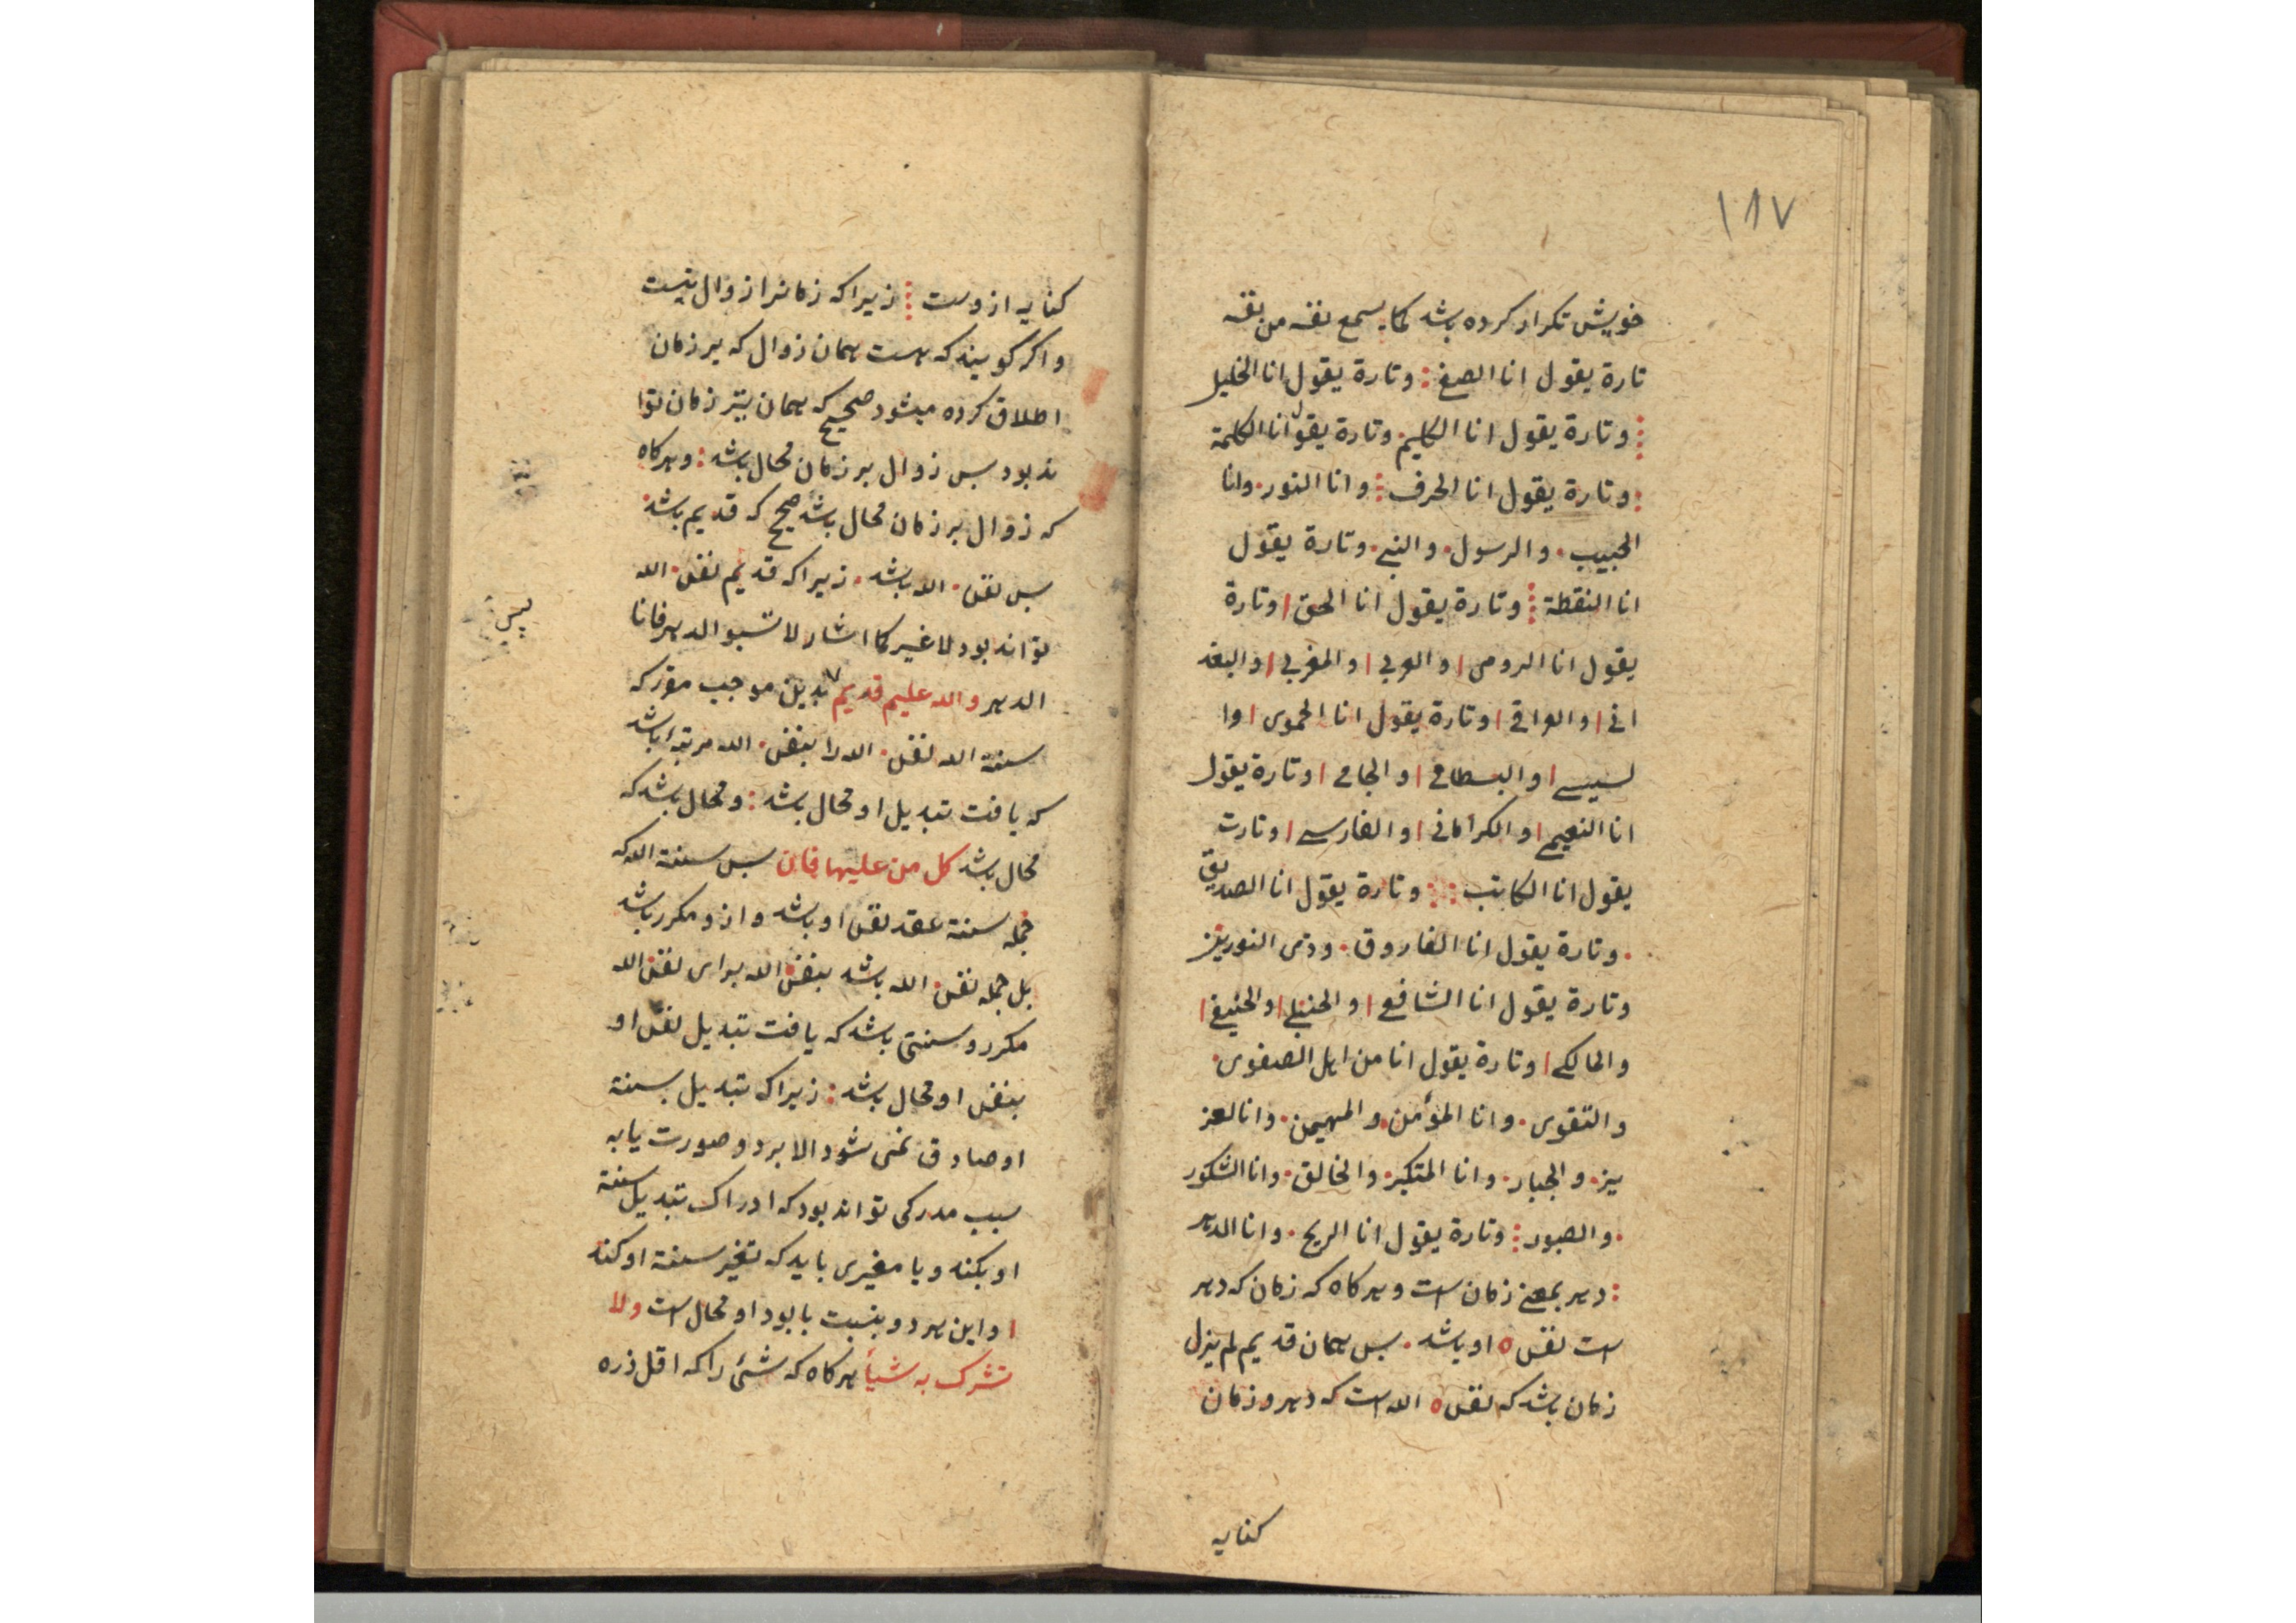 ١٨٧
خویش تکرار کرده باشد کما یسمع نفسه من نفسه
تارة یقول انا الصفی : وتارة یقول انا الخلیل
وتارة یقول انا الکلیم وتارة یقول انا الکلمة
: وتارة یقول انا الحرف : وانا النور . وانا
الحبیب . والرسول . والنبی . وتارة یقول
انا النقطة : وتارة یقول انا الحق | وتارة
یقول انا الرومی | والعربی | والمغربی | والبغد
انی | والعراقی | وتارة یقول انا الحموی | وا
لسیسی | والبسطامی | والجامی | وتارة یقول
انا النعیمی | والکرمانی | والفارسی | وتارت
یقول انا الکاتب : وتارة یقول انا الصدیق
. وتارة یقول انا الفاروق . وذی النورین
وتارة یقول انا الشافعی | والحنبلی | والحنیفی |
والمالکی | وتارة یقول انا من اهل الصفوی .
والتقوی . وانا المؤمن . والمهیمن . وانا لعز
یز . والجبار . وانا المتکبر . والخالق . وانا الشکور
. والصبور : وتارة یقول انا الریح . وانا الدهر
: دهر بمعنی زمان است وهرکاه که زمان که دهر
است نفس ٥ او باشد . بس همان قدیم لم یزل
زمان باشد که نفس ٥ الله است که دهر و زمان
کنایه
کنایه ازوست : زیرا که زمانرا زوال نیست
واکر کویند که هست همان زوال که بر زمان
اطلاق کرده میشود صحیح که همان بتر زمان توا
ند بود بس زوال بر زمان محال باشد : وهرکاه
که زوال بر زمان محال باشد صحیح که قدیم باشد
بس نفس . الله باشد . زیرا که قدیم نفس . الله
تواند بود لا غیر کما اشار لا تسبو الدهر فانا
الدهر والله علیم قدیم بدین موجب مقرر که
سنة الله نفس . الله را بنفس . الله مرتبه باشد
که یافت تبدیل او محال باشد : ومحال باشد که
محال باشد کل من علیها فان بس سنة الله که
جمله سنة عقد نفس او باشد و ازو مکرر باشد
بل جمله نفس . الله باشد بنفس الله برای نفس الله
مکرر و سنتی باشد که یافت تبدیل نفس او
بنفس او محال باشد : زیرا که تبدیل سنة
او صادق نمی شود الا بر دو صورت یا به
سبب مدرکی تواند بود که ادراک تبدیل سنة
او بکند و یا مغیری باید که تغیر سنة او کند
| واین هر دو بنسبت بابود او محال است ولا
تشرک به شیأ هرکاه که شئ را که اقل ذره